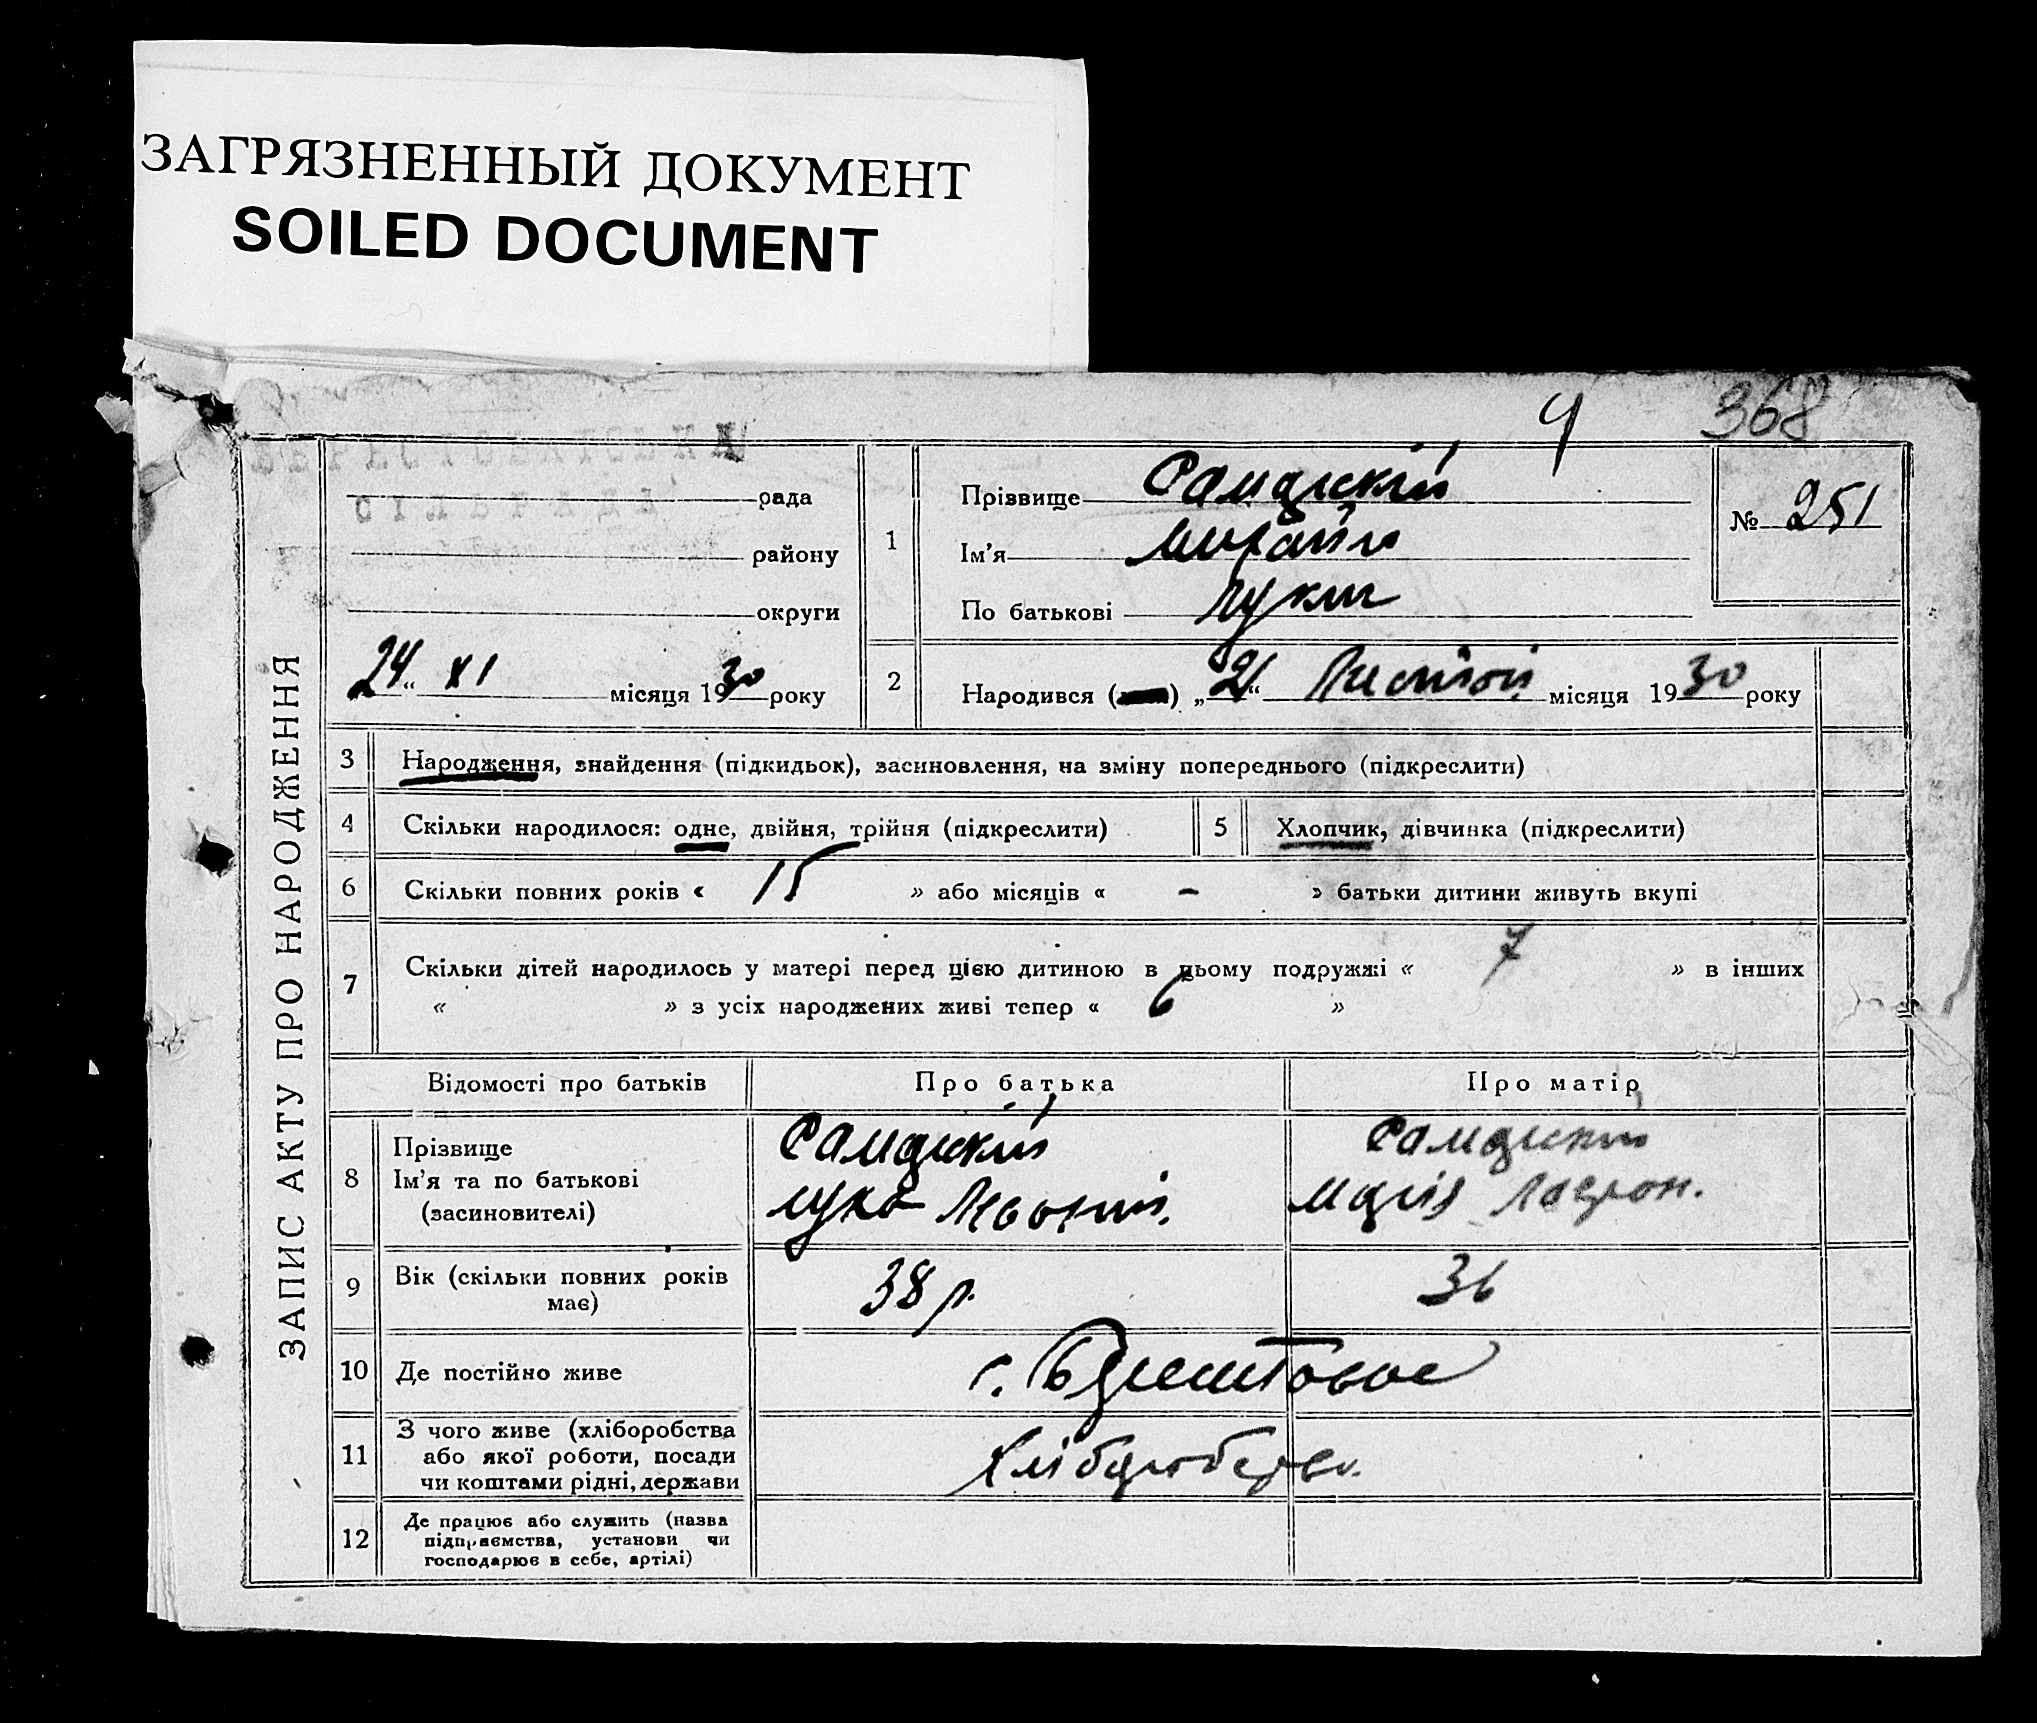 ЗАГРЯЗНЕННЫЙ ДОКУМЕНТ
SOILED DOCUMENT
9 368
ЗАПИС АКТУ ПРО НАРОДЖЕННЯ
рада
району
округи
24 “ XI місяця 1930 року
1
Прізвище
Ім’я
По батькові
№ 251
2 Народився ( ) „ 21 “ місяця 1930 року
3 Народження, знайдення (підкидьок), засиновлення, на зміну попереднього (підкреслити)
4 Скільки народилося: одне, двійня, трійня (підкреслити)
5 Хлопчик, дівчинка (підкреслити)
6 Скільки повних років « 15 » або місяців « – » батьки дитини живуть вкупі
7 Скільки дітей народилось у матері перед цією дитиною в цьому подружжі « 7 » в інших
« » з усіх народжених живі тепер « 6 »
Відомості про батьків Про батька Про матір
8 Прізвище
Ім’я та по батькові
(засиновителі)
Лука
Марія
9 Вік (скільки повних років
має)
38 р. 36
10 Де постійно живе
с.
11 З чого живе (хліборобства
або якої роботи, посади
чи коштами рідні, держави
12 Де працює або служить (назва
підприємства, установи чи
господарює в себе, артілі)